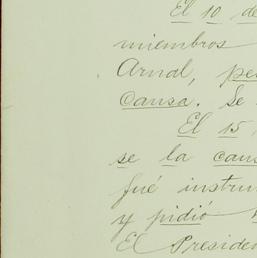 El 10 de
miembros
Arnal, pe
Causa. Se
El 15,
se la cau
fué instru
y pidió
El Presiden